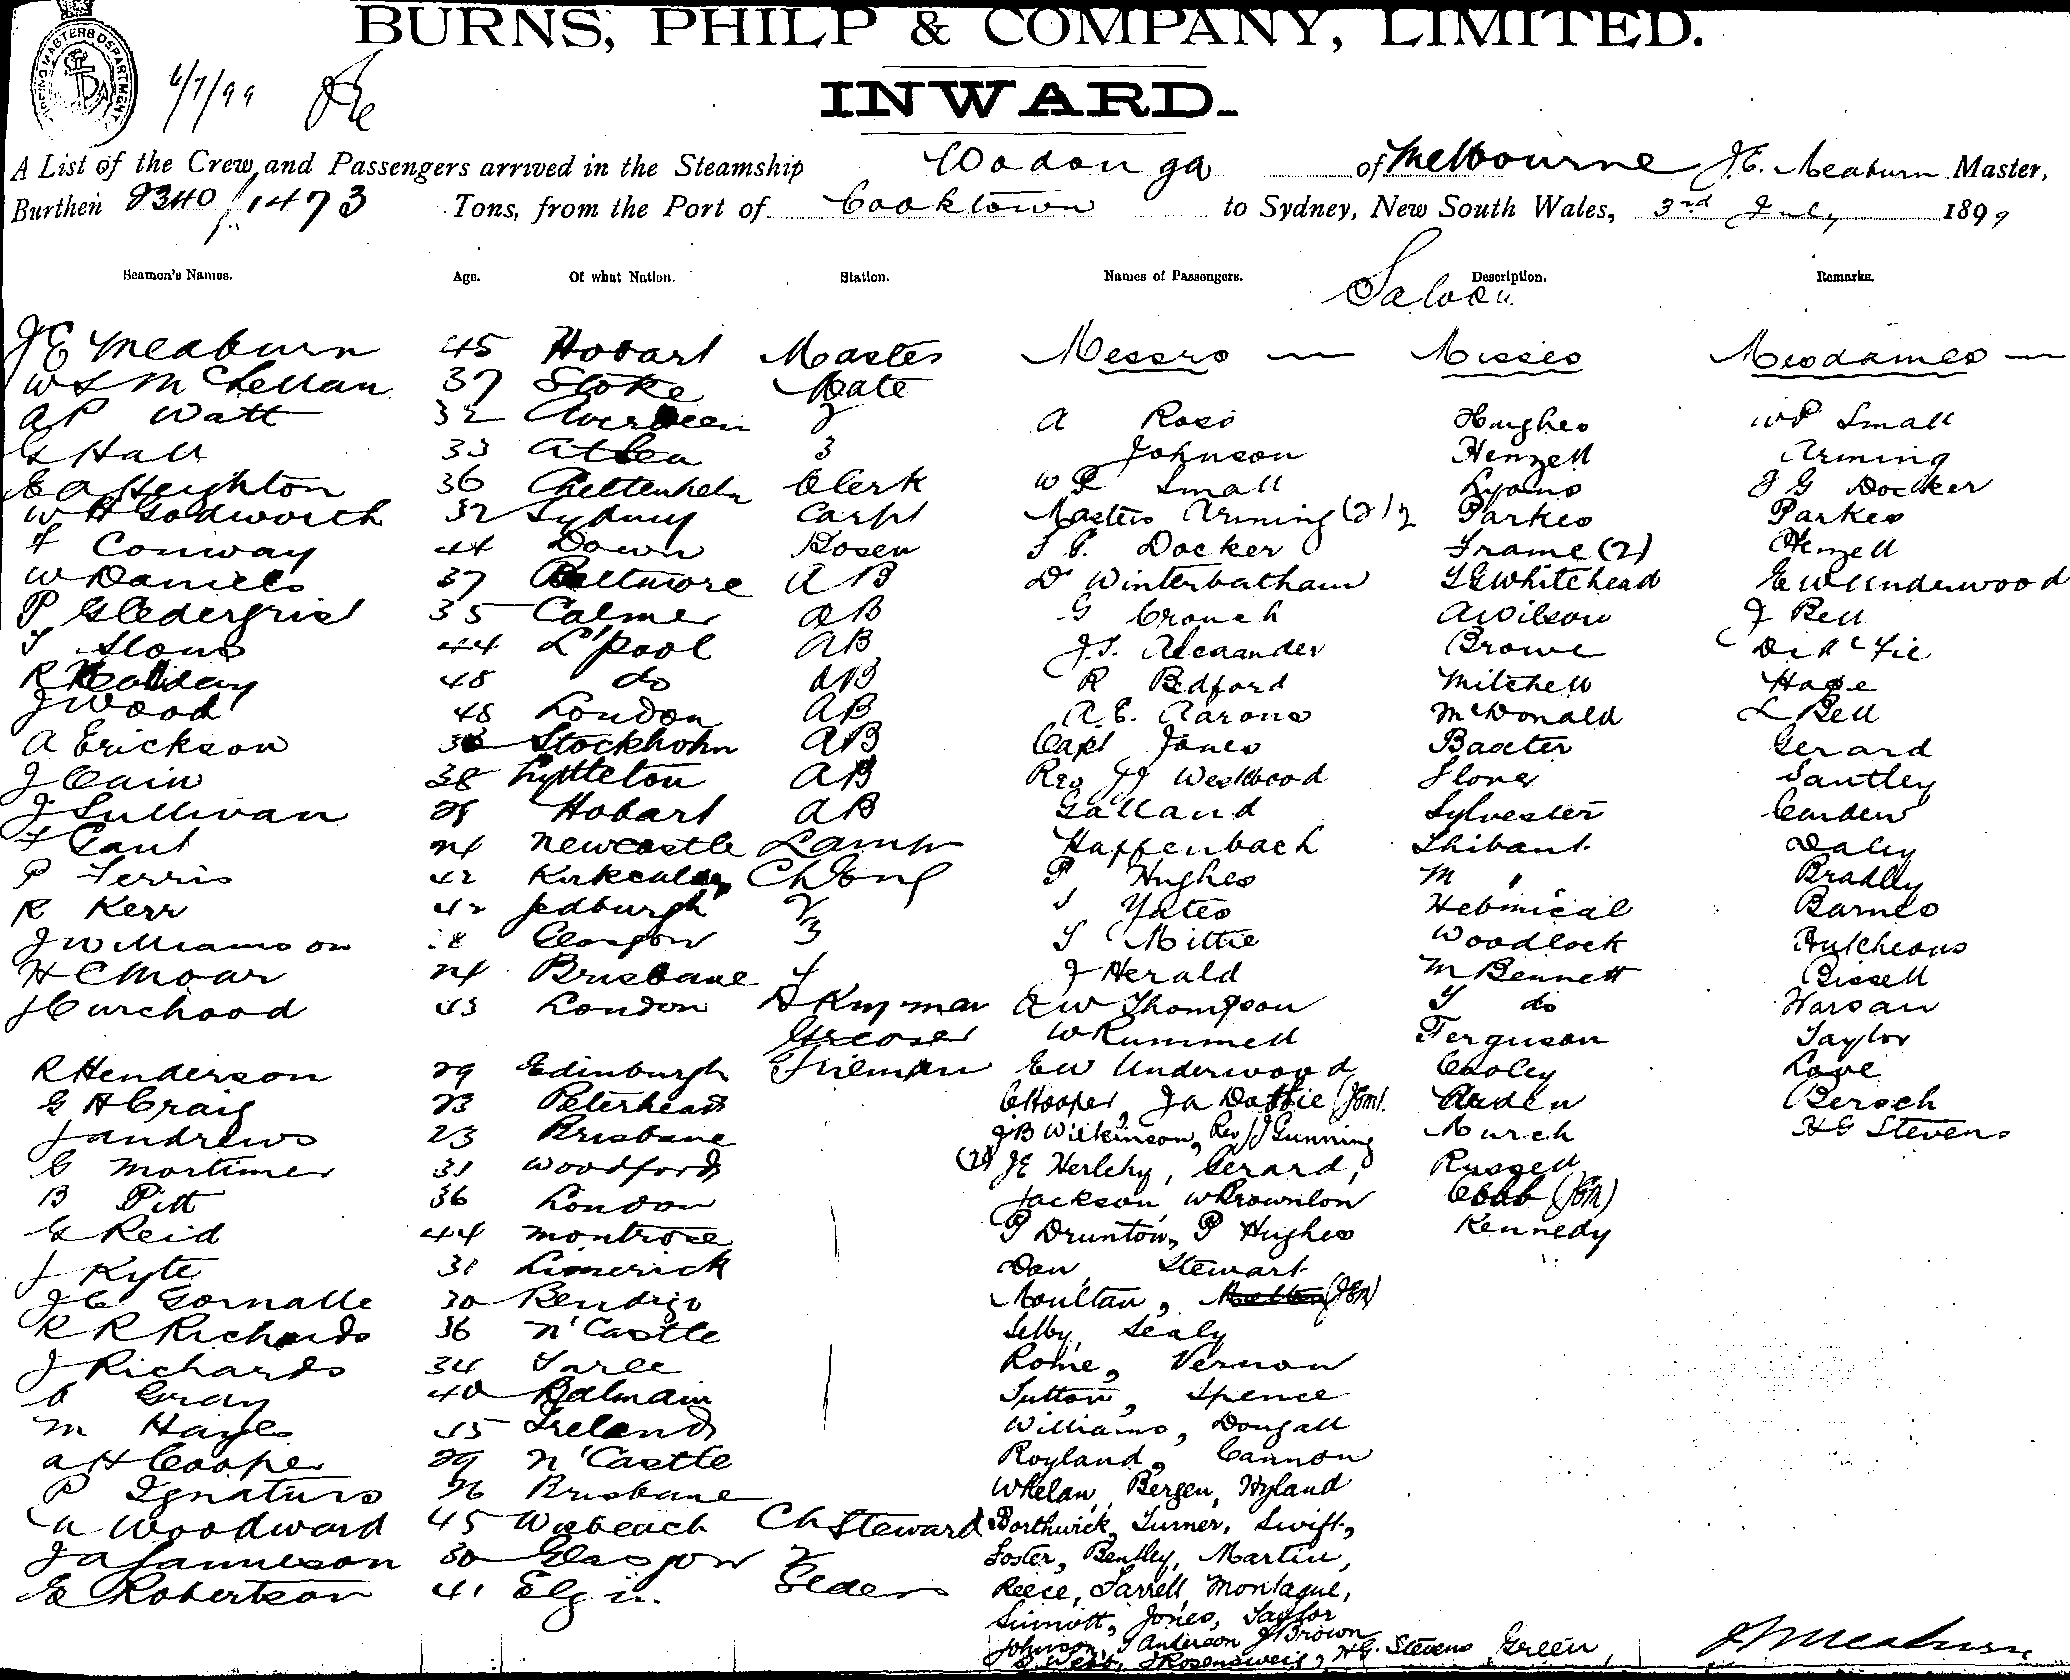 BURNS, PHILP & COMPANY, LIMITED.
4/7/99
INWARD.
A List of the Crew and Passengers arrived in the Steamship Wodonga of Melbourne J.E. Meaburn Master,
Burthen 2340/1473 Tons, from the Port of Cooktown to Sydney, New South Wales, 3rd July 1899
Seamen's Names. Age. Of what Nation. Station. Names of Passengers. Description. Remarks.
Saloon
J E Meaburn 45 Hobart Master Messrs — Misses Mesdames —
W L McLellan 37 Stoke Mate
A P Watt 32 Aberdeen 2 A Ross Hughes W P Small
G Hall 33 At Sea 3 Johnson Henzell Arming
E A Heighton 36 Cheltenham Clerk W P Small Lyons J G Docker
W H Godworth 32 Sydney Carpt Masters Arming (2) Parkes Parkes
F Conway 44 Down Bosen Docker Frame (2) Henzell
W Daniels 37 Baltimore AB Dr Winterbotham Whitehead E W Underwood
P Gledergrist 35 Calmer AB G Crouch A Wilson J Bell
T Slous 44 L'pool AB J.S. Alexander Browe
R Holliday 48 do AB R Bedford Mitchell Hage
J Wood 48 London AB A.E. Aarons McDonald L Bell
A Erickson Stockholm AB Capt Jones Baxter Gerard
J Cain 38 Lyttleton AB Rev JJ Westwood Stones Santley
J Sullivan 29 Hobart AB Galland Sylvester Carden
F Cant 24 Newcastle Lamps Haffenbach Daley
P Ferris 42 Kirkcaldy P Hughes M " Bradley
R Kerr 42 Jedburgh 2 Yates Barnes
J Williamson 28 Glasgow 3 Mittie Woodlock Hutcheons
H C Moar 24 Brisbane 4 J Herald M Bennett Bissell
J Curchood 43 London A W Thompson do
Greaser W Rummell Ferguson Taylor
R Henderson 29 Edinburgh Fireman E W Underwood Cooley Love
G H Craig 23 Peterhead C Hooper, Bersch
J Andrews 23 Brisbane J B Wilkinson, Rev JJ Gunning Murch H G Stevens
G Mortimer 31 Woodford J E Herlihy, Gerard, Russell
B Pitt 36 London Jackson, W Brownlow Cobb
G Reid 44 Montrose P Drunton, P Hughes Kennedy
J Kyte 31 Limerick Dan Stewart
J C Gornalle 30 Bendigo Moultan,
R R Richards 36 N'Castle Selby, Sealy
J Richards 34 Taree Rome, Vernon
Gray 40 Balmain Sutton, Spence
M Hayes 45 Ireland Williams, Dougall
A H Cooper 29 N'Castle Royland, Cannon
P Ignatius 26 Brisbane Whelan, Bergen, Hyland
Woodward 45 Wisbeach Ch Steward Borthwick, Turner, Swift,
J A Jamieson 30 Glasgow 2 Foster, Bentley, Martin,
G Robertson 41 Elgin Reece, Farrell, Montague,
Sinnott, Jones, Taylor
Johnson, T Anderson J Brown
Webb, Rosensweig, H G. Stevens Green J E Meaburn